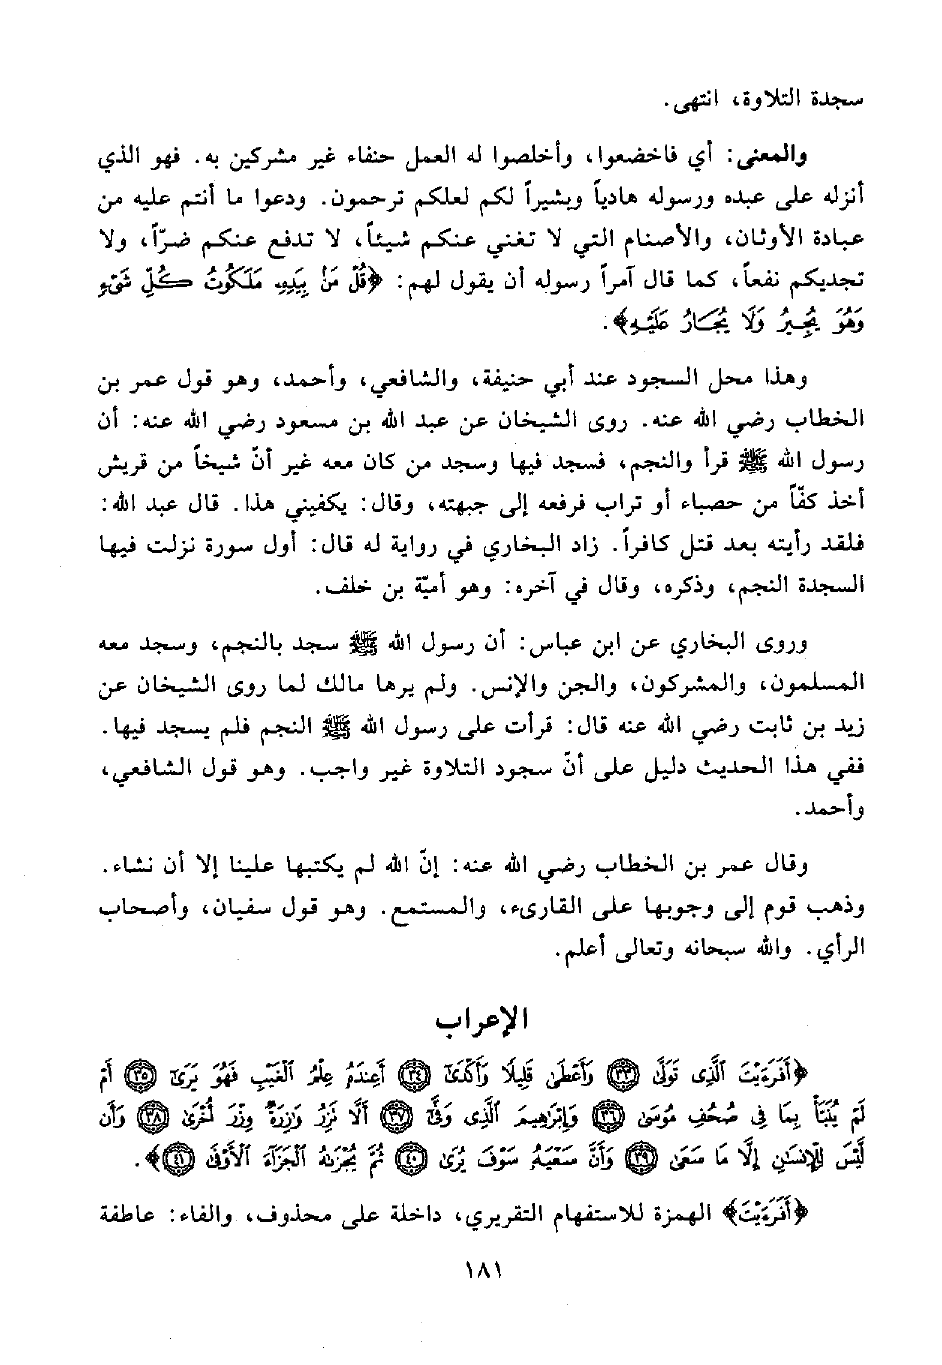 سجدة التلاوة، انتهى.
والمعنى: أي فاخضعوا، وأخلصوا له العمل حنفاء غير مشركين به. فهو الذي
أنزله على عبده ورسوله هادياً وبشيراً لكم لعلكم ترحمون. ودعوا ما أنتم عليه من
عبادة الأوثان، والأصنام التي لا تغني عنكم شيئاً، لا تدفع عنكم ضرّاً، ولا
تجديكم نفعاً، كما قال آمراً رسوله أن يقول لهم: ﴿قُلْ مَنْ بِيَدِهِ مَلَكُوتُ كُلِّ شَيْءٍ
وَهُوَ يُجِيرُ وَلَا يُجَارُ عَلَيْهِ﴾.
وهذا محل السجود عند أبي حنيفة، والشافعي، وأحمد، وهو قول عمر بن
الخطاب رضي الله عنه. روى الشيخان عن عبد الله بن مسعود رضي الله عنه: أن
رسول الله ﷺ قرأ والنجم، فسجد فيها وسجد من كان معه غير أنّ شيخاً من قريش
أخذ كفّاً من حصباء أو تراب فرفعه إلى جبهته، وقال: يكفيني هذا. قال عبد الله:
فلقد رأيته بعد قتل كافراً. زاد البخاري في رواية له قال: أول سورة نزلت فيها
السجدة النجم، وذكره، وقال في آخره: وهو أميّة بن خلف.
وروى البخاري عن ابن عباس: أن رسول الله ﷺ سجد بالنجم، وسجد معه
المسلمون، والمشركون، والجن والإنس. ولم يرها مالك لما روى الشيخان عن
زيد بن ثابت رضي الله عنه قال: قرأت على رسول الله ﷺ النجم فلم يسجد فيها.
ففي هذا الحديث دليل على أنّ سجود التلاوة غير واجب. وهو قول الشافعي،
وأحمد.
وقال عمر بن الخطاب رضي الله عنه: إنّ الله لم يكتبها علينا إلا أن نشاء.
وذهب قوم إلى وجوبها على القارىء، والمستمع. وهو قول سفيان، وأصحاب
الرأي. والله سبحانه وتعالى أعلم.
الإعراب
﴿أَفَرَءَيْتَ ٱلَّذِى تَوَلَّىٰ ٣٣ وَأَعْطَىٰ قَلِيلًا وَأَكْدَىٰٓ ٣٤ أَعِندَهُۥ عِلْمُ ٱلْغَيْبِ فَهُوَ يَرَىٰٓ ٣٥ أَمْ
لَمْ يُنَبَّأْ بِمَا فِى صُحُفِ مُوسَىٰ ٣٦ وَإِبْرَٰهِيمَ ٱلَّذِى وَفَّىٰٓ ٣٧ أَلَّا تَزِرُ وَازِرَةٌ وِزْرَ أُخْرَىٰ ٣٨ وَأَن
لَّيْسَ لِلْإِنسَٰنِ إِلَّا مَا سَعَىٰ ٣٩ وَأَنَّ سَعْيَهُۥ سَوْفَ يُرَىٰ ٤٠ ثُمَّ يُجْزَىٰهُ ٱلْجَزَآءَ ٱلْأَوْفَىٰ ٤١﴾.
﴿أَفَرَءَيْتَ﴾ الهمزة للاستفهام التقريري، داخلة على محذوف، والفاء: عاطفة
١٨١